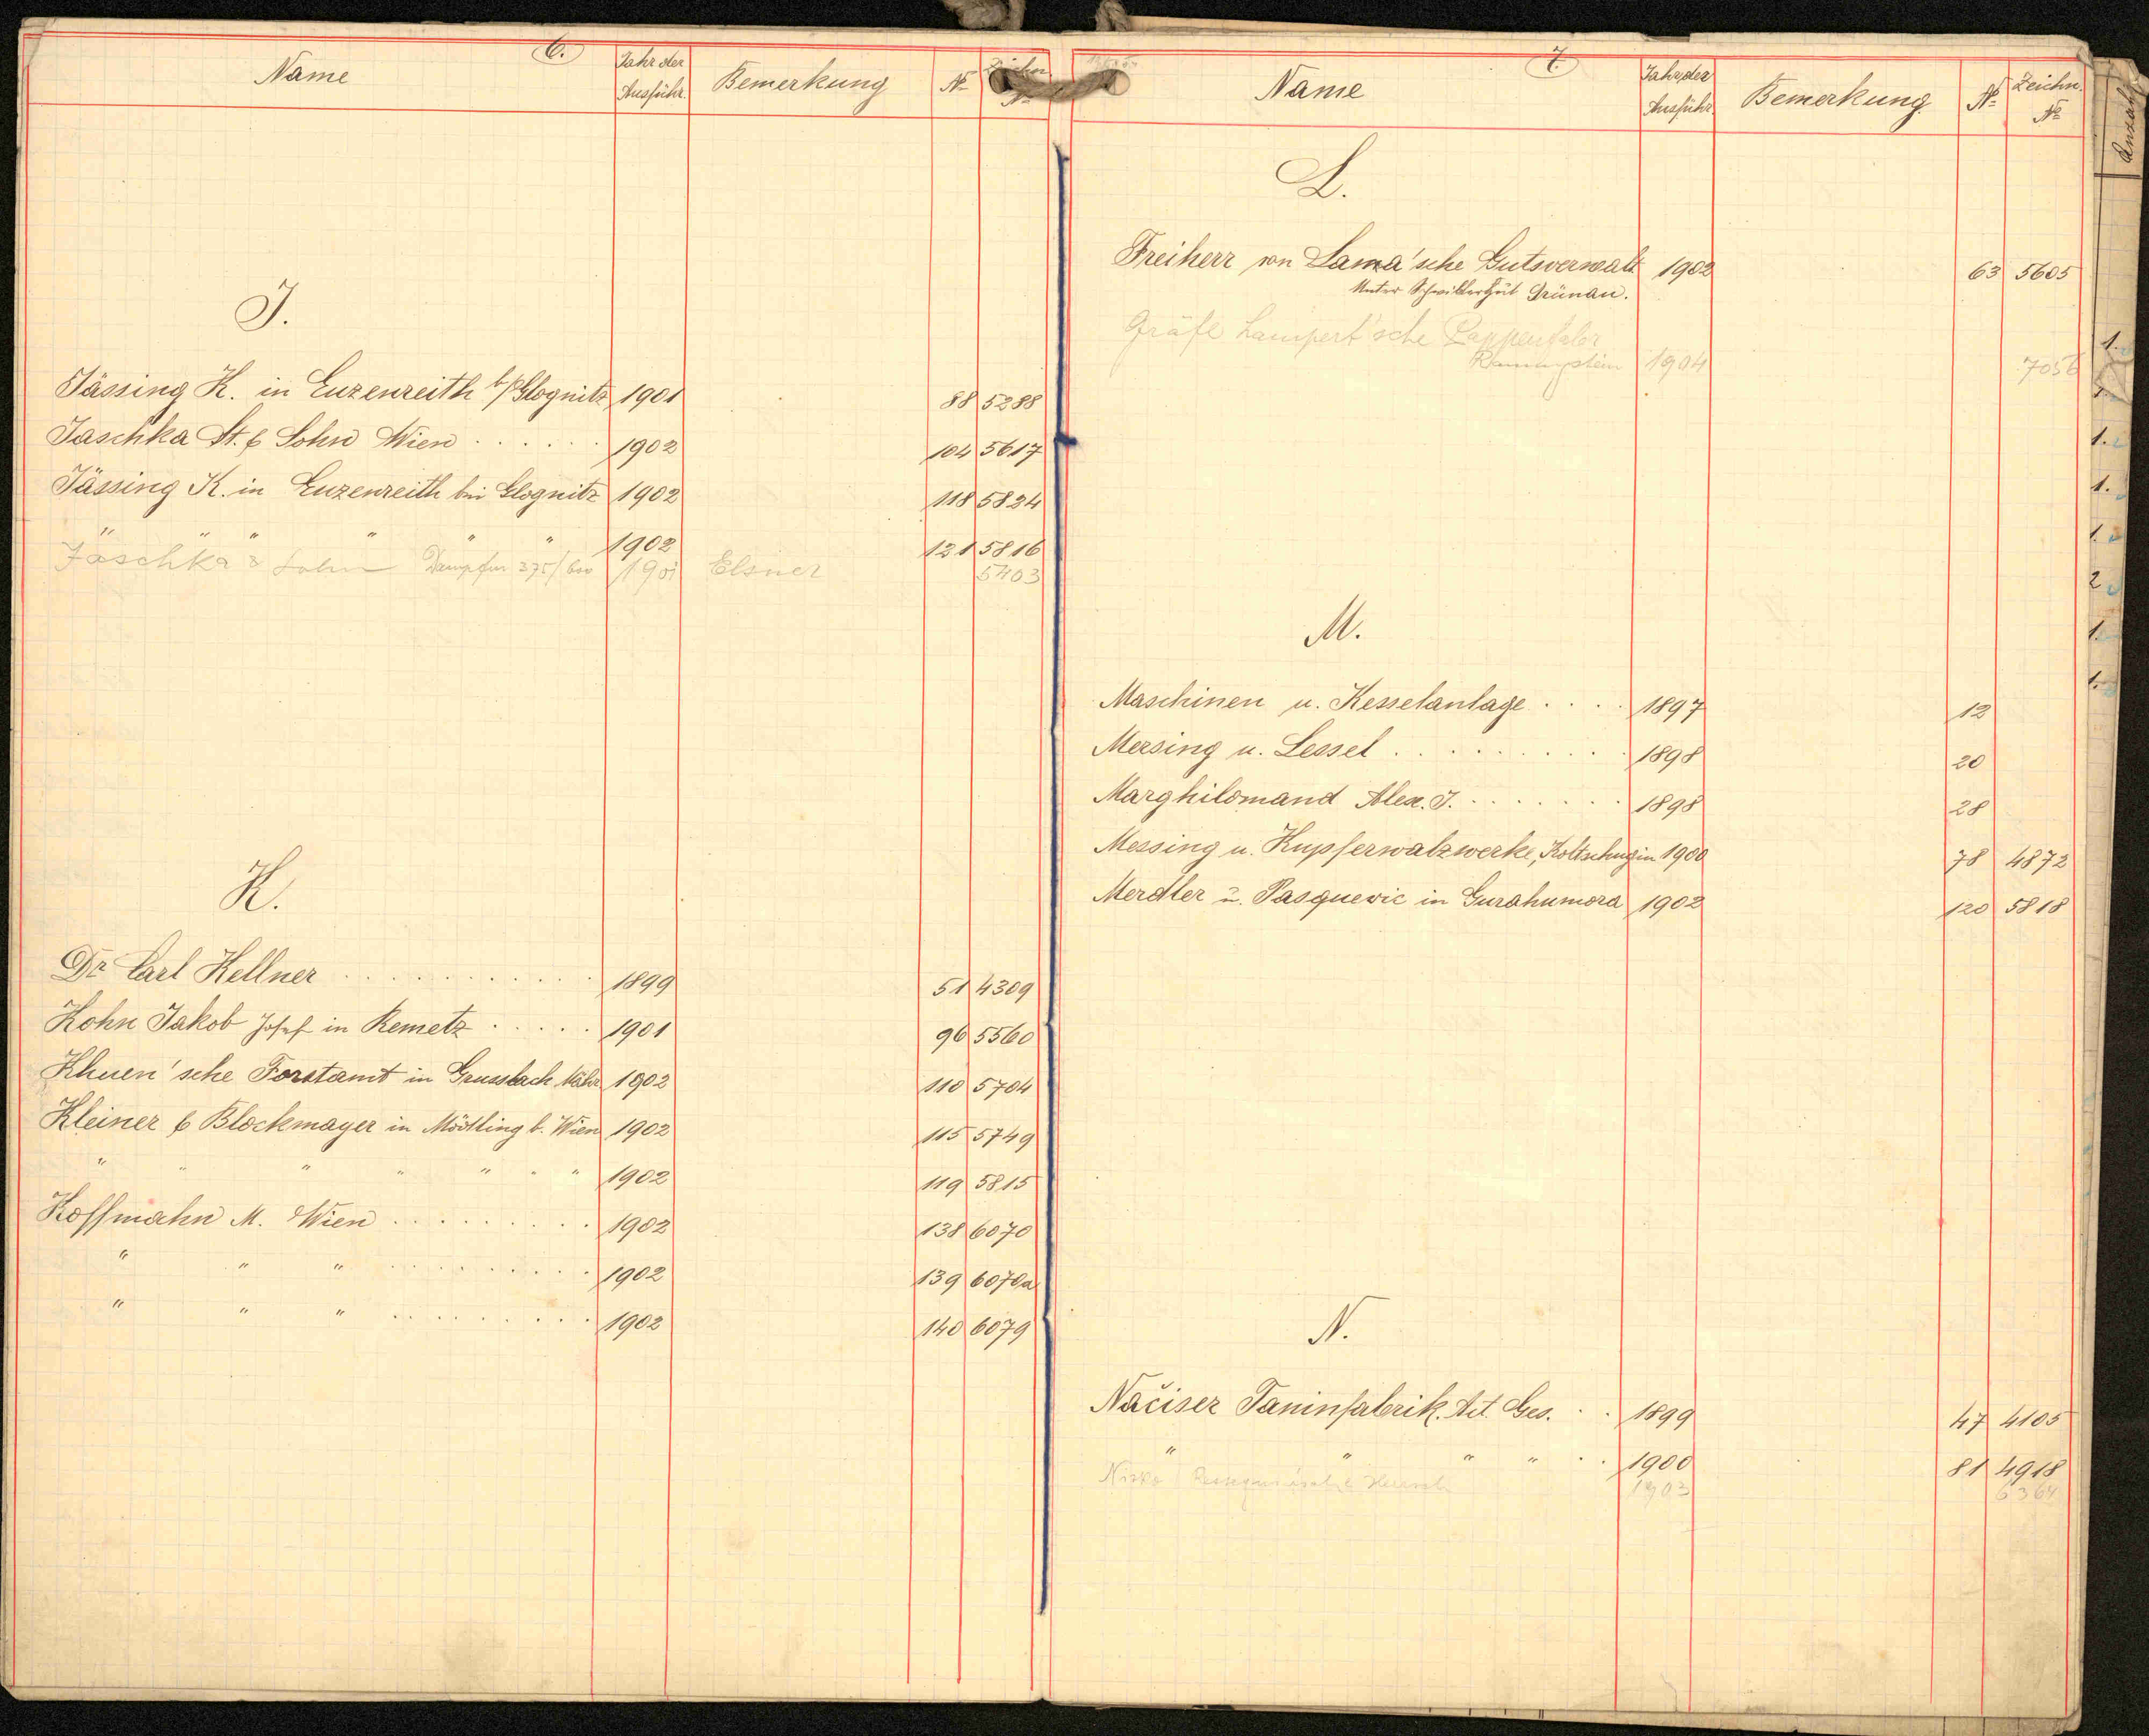 6.
Name Jahr der Ausführ. Bemerkung № Zeichn. №
J.
Jässing K. in Enzenreith b/Glognitz 1901 88 5288
Jaschka St. & Sohn Wien . . . . . . 1902 104 5617
Jässing K. in Enzenreith bei Glognitz 1902 118 5824
" " " " " " 1902 121 5816
Jaschka & Sohn Dampfm 375/600 1901 Elsner 5403
K.
Dr Carl Kellner . . . . . . . . . . . 1899 51 4309
Kohn Jakob Josef in Remetz . . . . . 1901 96 5560
Khuen'sche Forstamt in Grussbach Mähr 1902 110 5704
Kleiner & Blockmayer in Mödling b. Wien 1902 115 5749
" " " " " " " 1902 119 5815
Koffmahn M. Wien . . . . . . . . . 1902 138 6070
" " " . . . . . . . . . 1902 139 6070a
" " " . . . . . . . . . 1902 140 6079
7.
Name Jahr der Ausführ. Bemerkung. № Zeichn. №
L.
Freiherr von Lama'sche Gutsverwalt. 1902 63 5605
Unter Grünau.
Gräfl Lampert'sche
1904 7056
M.
Maschinen u. Kesselanlage . . . . 1897 12
Mersing u. Lessel . . . . . . . . . . 1898 20
Marghilomand Alex. J. . . . . . . . 1898 28
Messing u. Kupferwalzwerke, Koltschugin 1900 78 4872
Merdler u. Pasquevic in Gurahumora 1902 120 5818
N.
Načiser Taninfabrik. Act. Ges. . . 1899 47 4105
" " " " . . 1900 81 4918
1903 6364
Anzahl
1.
1.
1.
1.
2
1.
1.